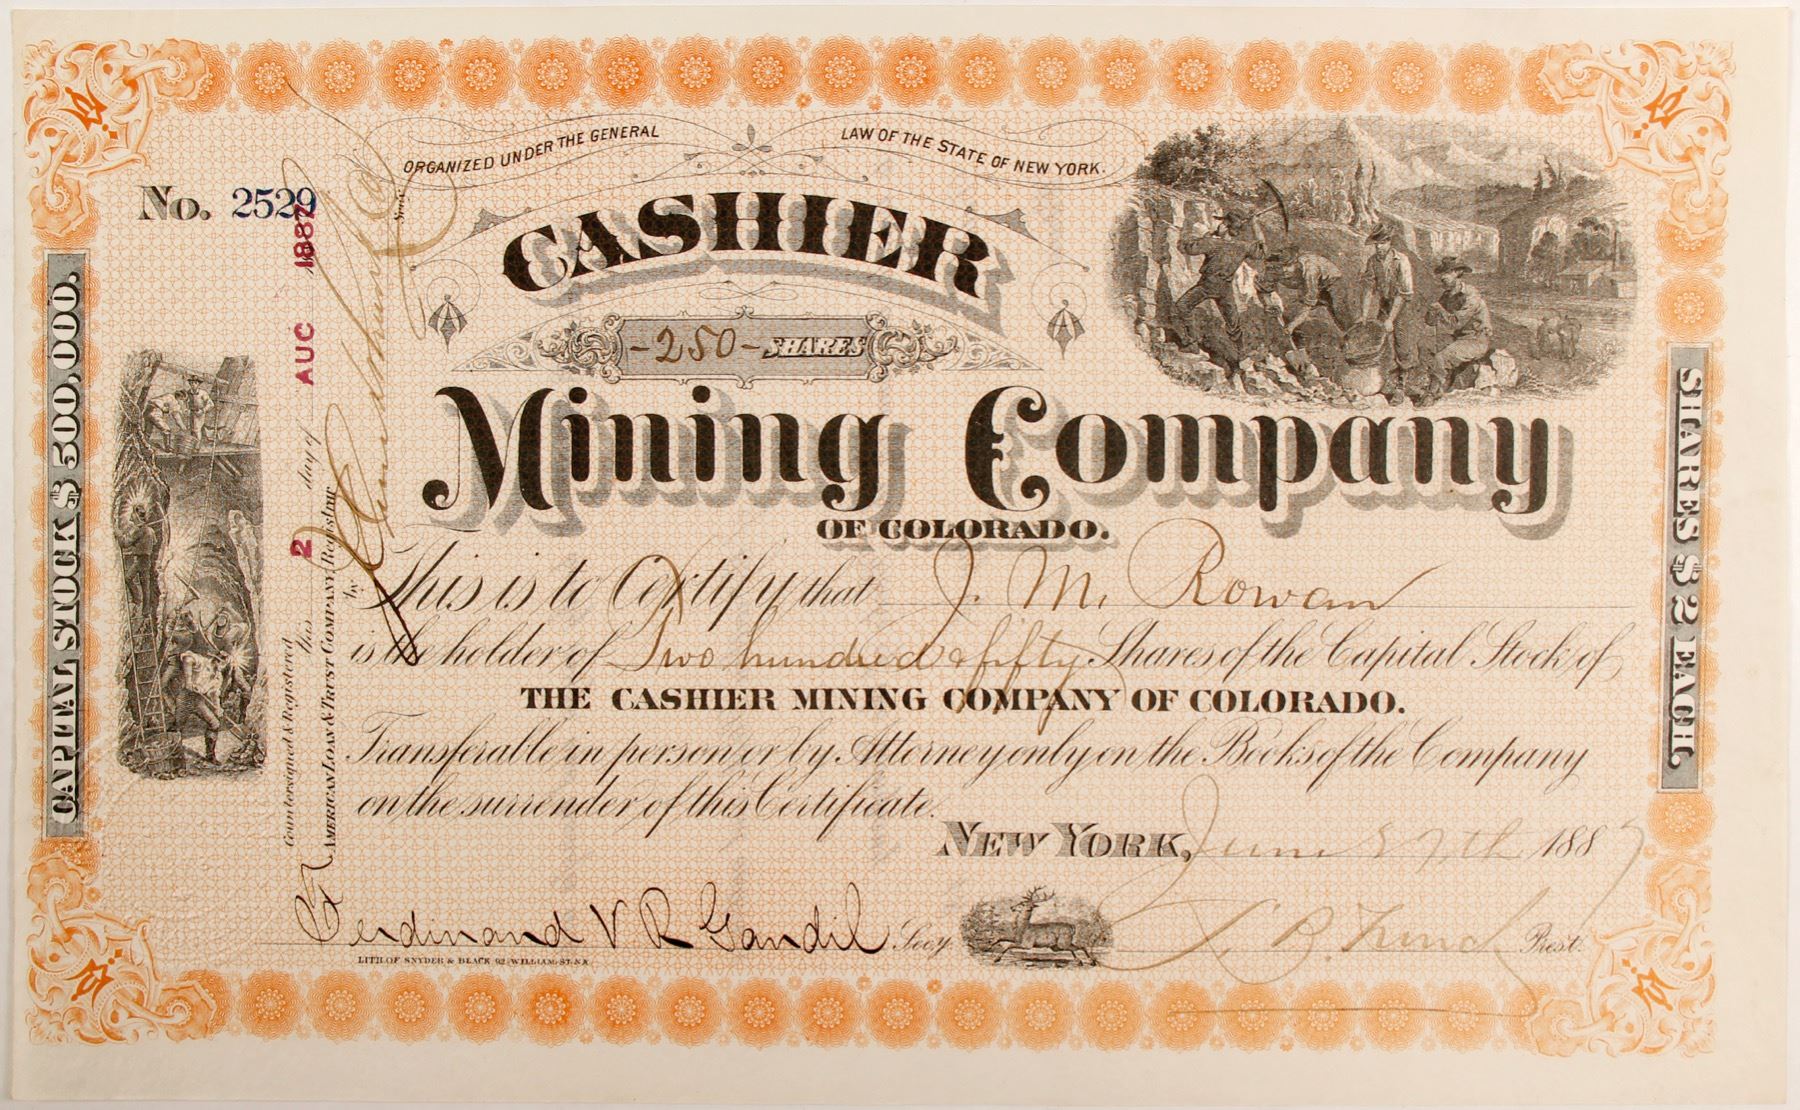 ORGANIZED UNDER THE GENERAL LAW OF THE STATE OF NEW YORK.
No. 2529
CASHIER
-250- SHARES
Mining Company
OF COLORADO.
This is to Certify that J. M. Rowan
is the holder of Two hundred & fifty Shares of the Capital Stock of
THE CASHIER MINING COMPANY OF COLORADO.
Transferable in person or by Attorney only on the Books of the Company
on the surrender of this Certificate.
NEW YORK, June 27th 1887
Ferdinand V R Gandil Secy.
Prest.
LITH. OF SNYDER & BLACK 92 WILLIAM ST. N.Y.
CAPITAL STOCK $ 500,000.
SHARES $ 2 EACH.
Countersigned & Registered
this 2 day of AUG 1887
AMERICAN LOAN & TRUST COMPANY, Registrar
by